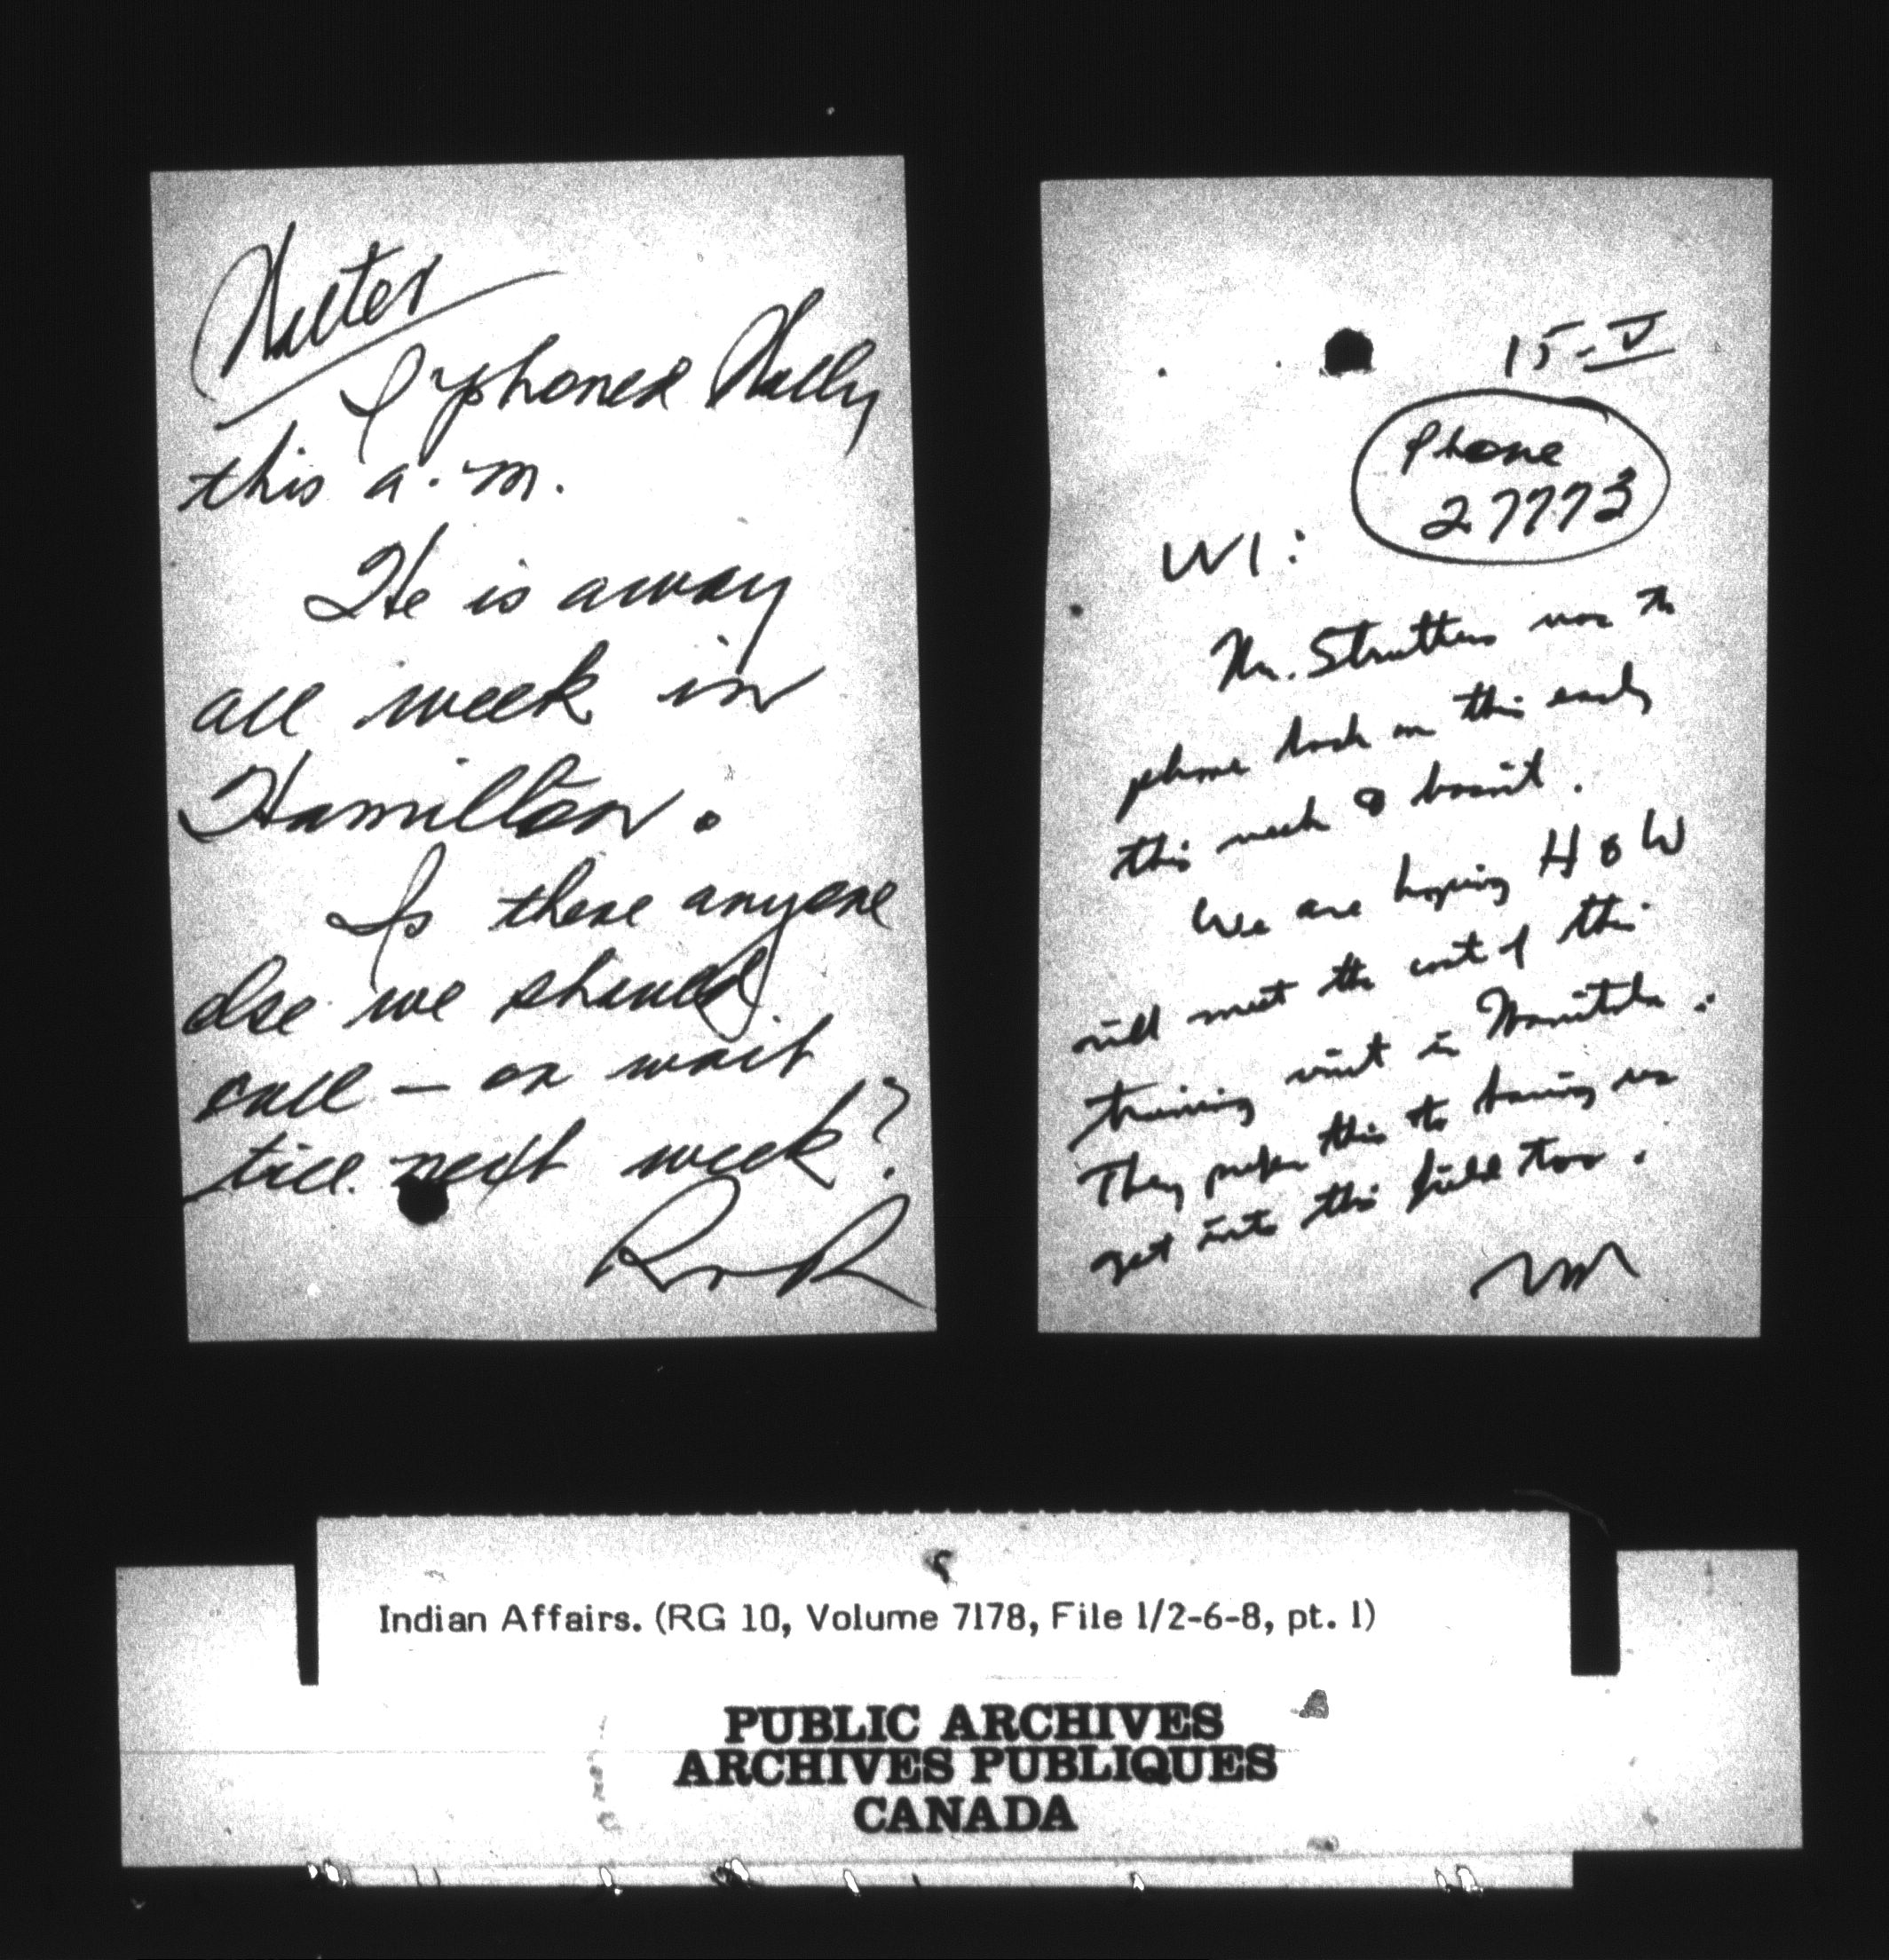 Walter
I phoned Wally
this a.m.
He is away
all week in
Hamilton.
Is there anyone
else we should
call – or wait
till next week?
15-V
Phone
27773
WI:
Mr. Struthers was to
phone back on this early
this week & hasn't.
We are hoping H & W
will meet the cost of this
training visit in Manitoba.
They prefer this to having us
get into this field too.
Indian Affairs. (RG 10, Volume 7178, File 1/2-6-8, pt. 1)
PUBLIC ARCHIVES
ARCHIVES PUBLIQUES
CANADA